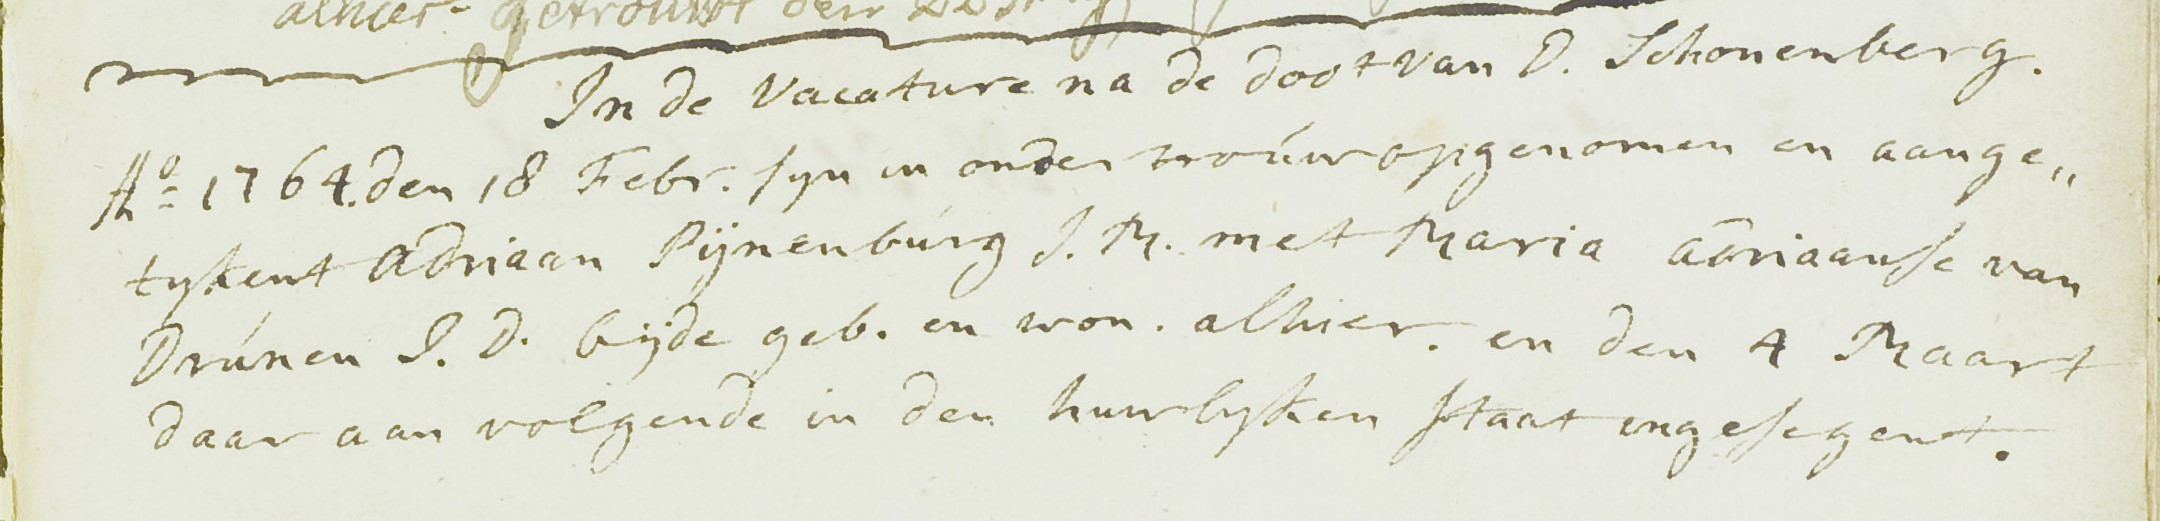 alhier getrouwt den
In de Vacature na de doot van D. Schonenberg.
Aº 1764. den 18 Febr. syn in ondertrouw opgenomen en aange„
tykent Adriaan Pijnenburg J. M. met Maria adriaanse van
Drúnen J. D. bijde geb. en won. alhier. en den 4 Maart
daar aan volgende in den huwlyken staat ingesegent.